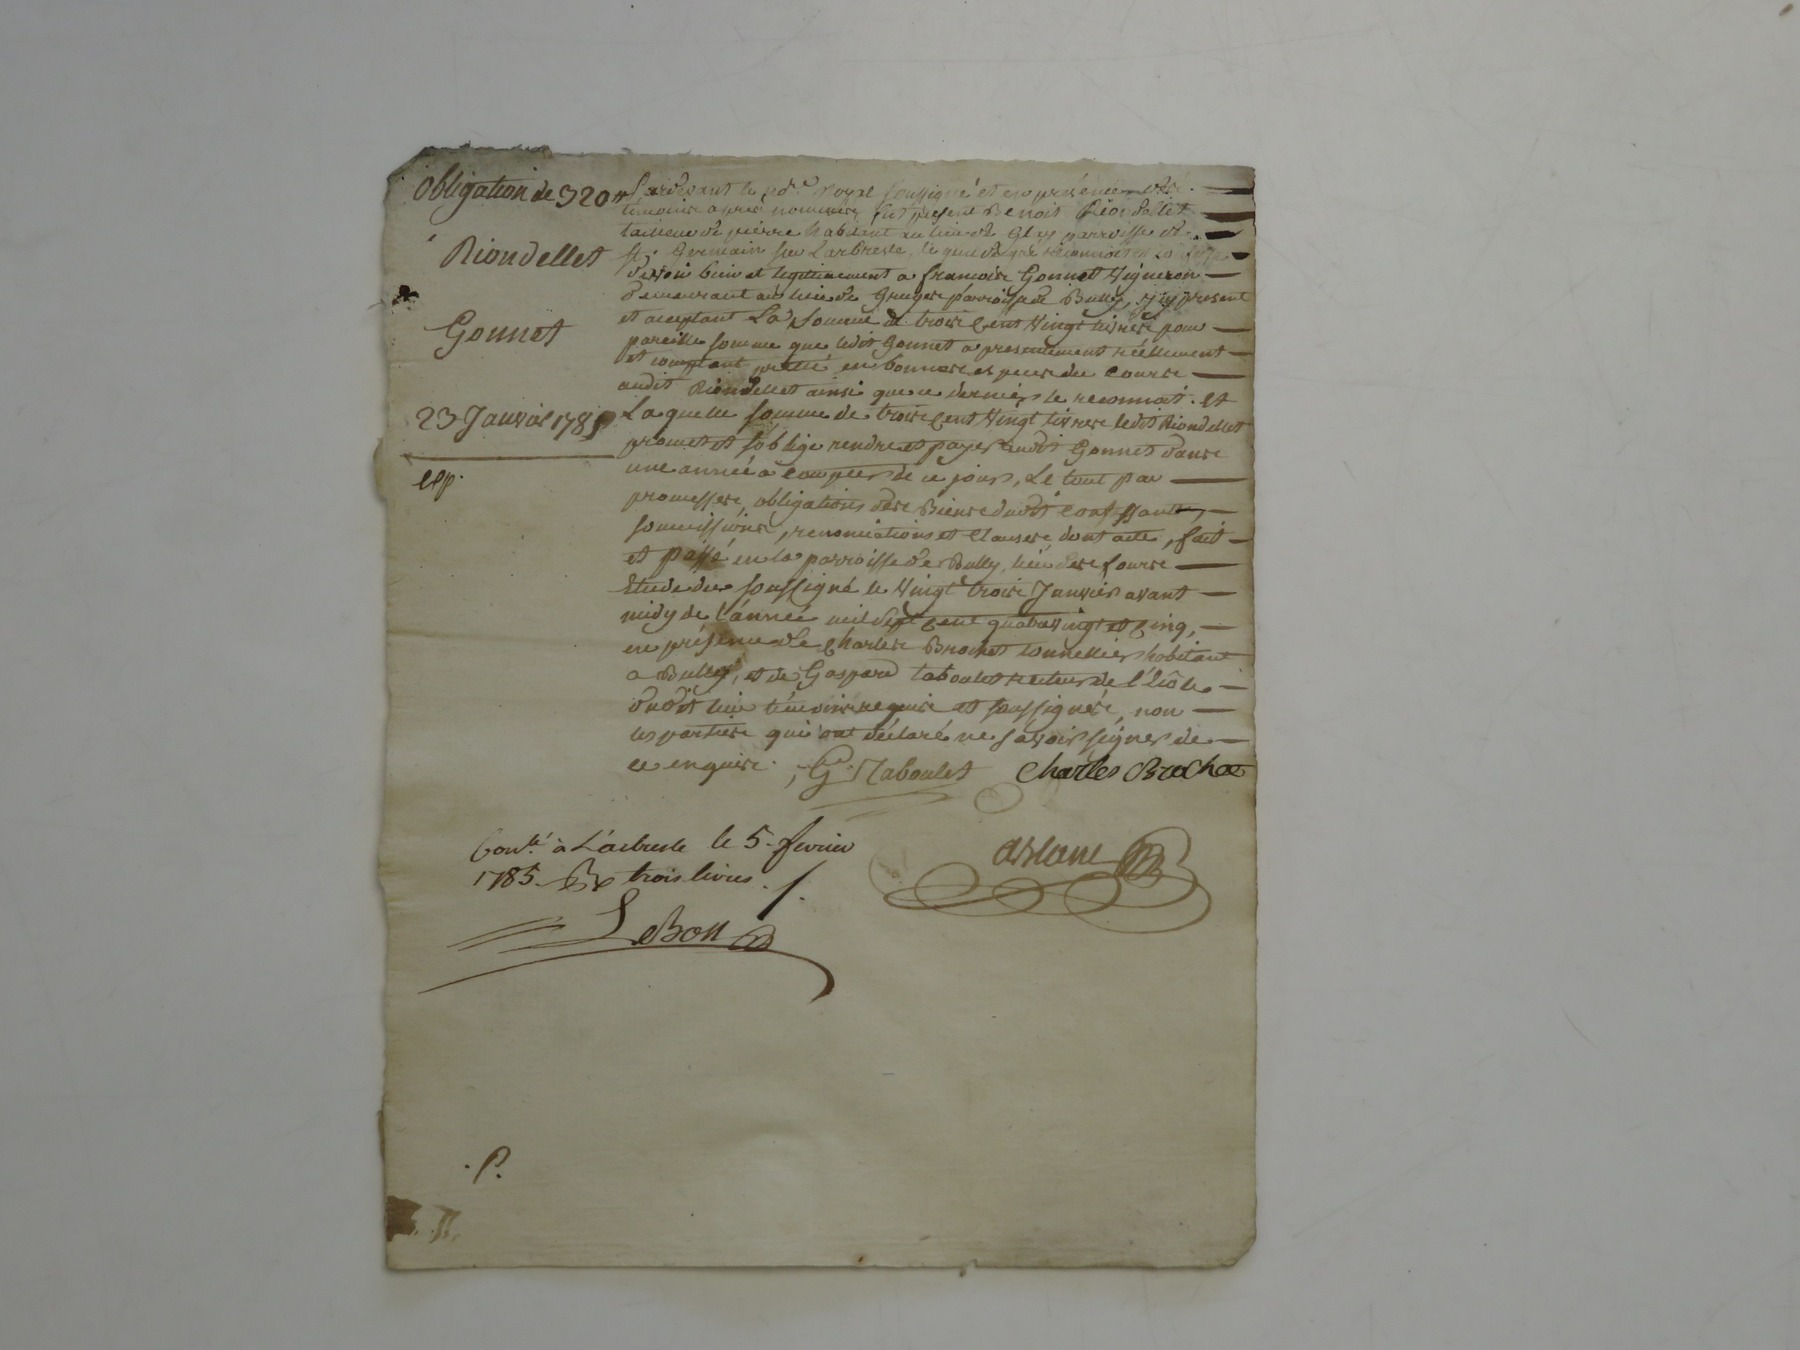 Obligation de 320 tt
Riondellet
Gonnet
23 Janvier 1785
exp.
Pardevant le no.re Royal soussigné et en présence des
témoins après nommés, fut présent Benoit Riondellet
tailleur de pierre habitant au lieu de Glay parroisse de
st. Germain sur Larbresle, lequel de gré reconnoit
devoir bien et legitimement a françois Gonnet Vigneron
demeurant au lieu de Grugere parroisse de Bully, icy present
et acceptant La Somme de trois Cent Vingt livres pour
pareille somme que ledit Gonnet a presentement réellement
et comptant pretté en bonnes especes du Cours
audit Riondellet ainsi que ce dernier le reconnoit. et
Laquelle somme de trois Cent Vingt livres ledit Riondellet
promet et s'oblige rendre et payer audit Gonnet dans
une année a compter de ce jour, Le tout par
promesses, obligations des Biens dudit
soumissions, renonciations et Clauses, dont acte, fait
et passé en la parroisse de Bully, lieu des fours
Etude du soussigné le Vingt trois Janvier avant
midy de l'année mil sept cent quatrevingt et Cinq,
en présence de Charles Brochet tonnellier habitant
a Bully, et de Gaspard taboulet recteur de l'École
dudit lieu témoins requis et soussignés, non
les parties qui ont déclaré ne savoir signer de
ce enquis. G. Taboulet Charles Brochet
Con.lé à L'arbresle le 5. fevrier
1785. Rx trois livres.
LeBon
P.